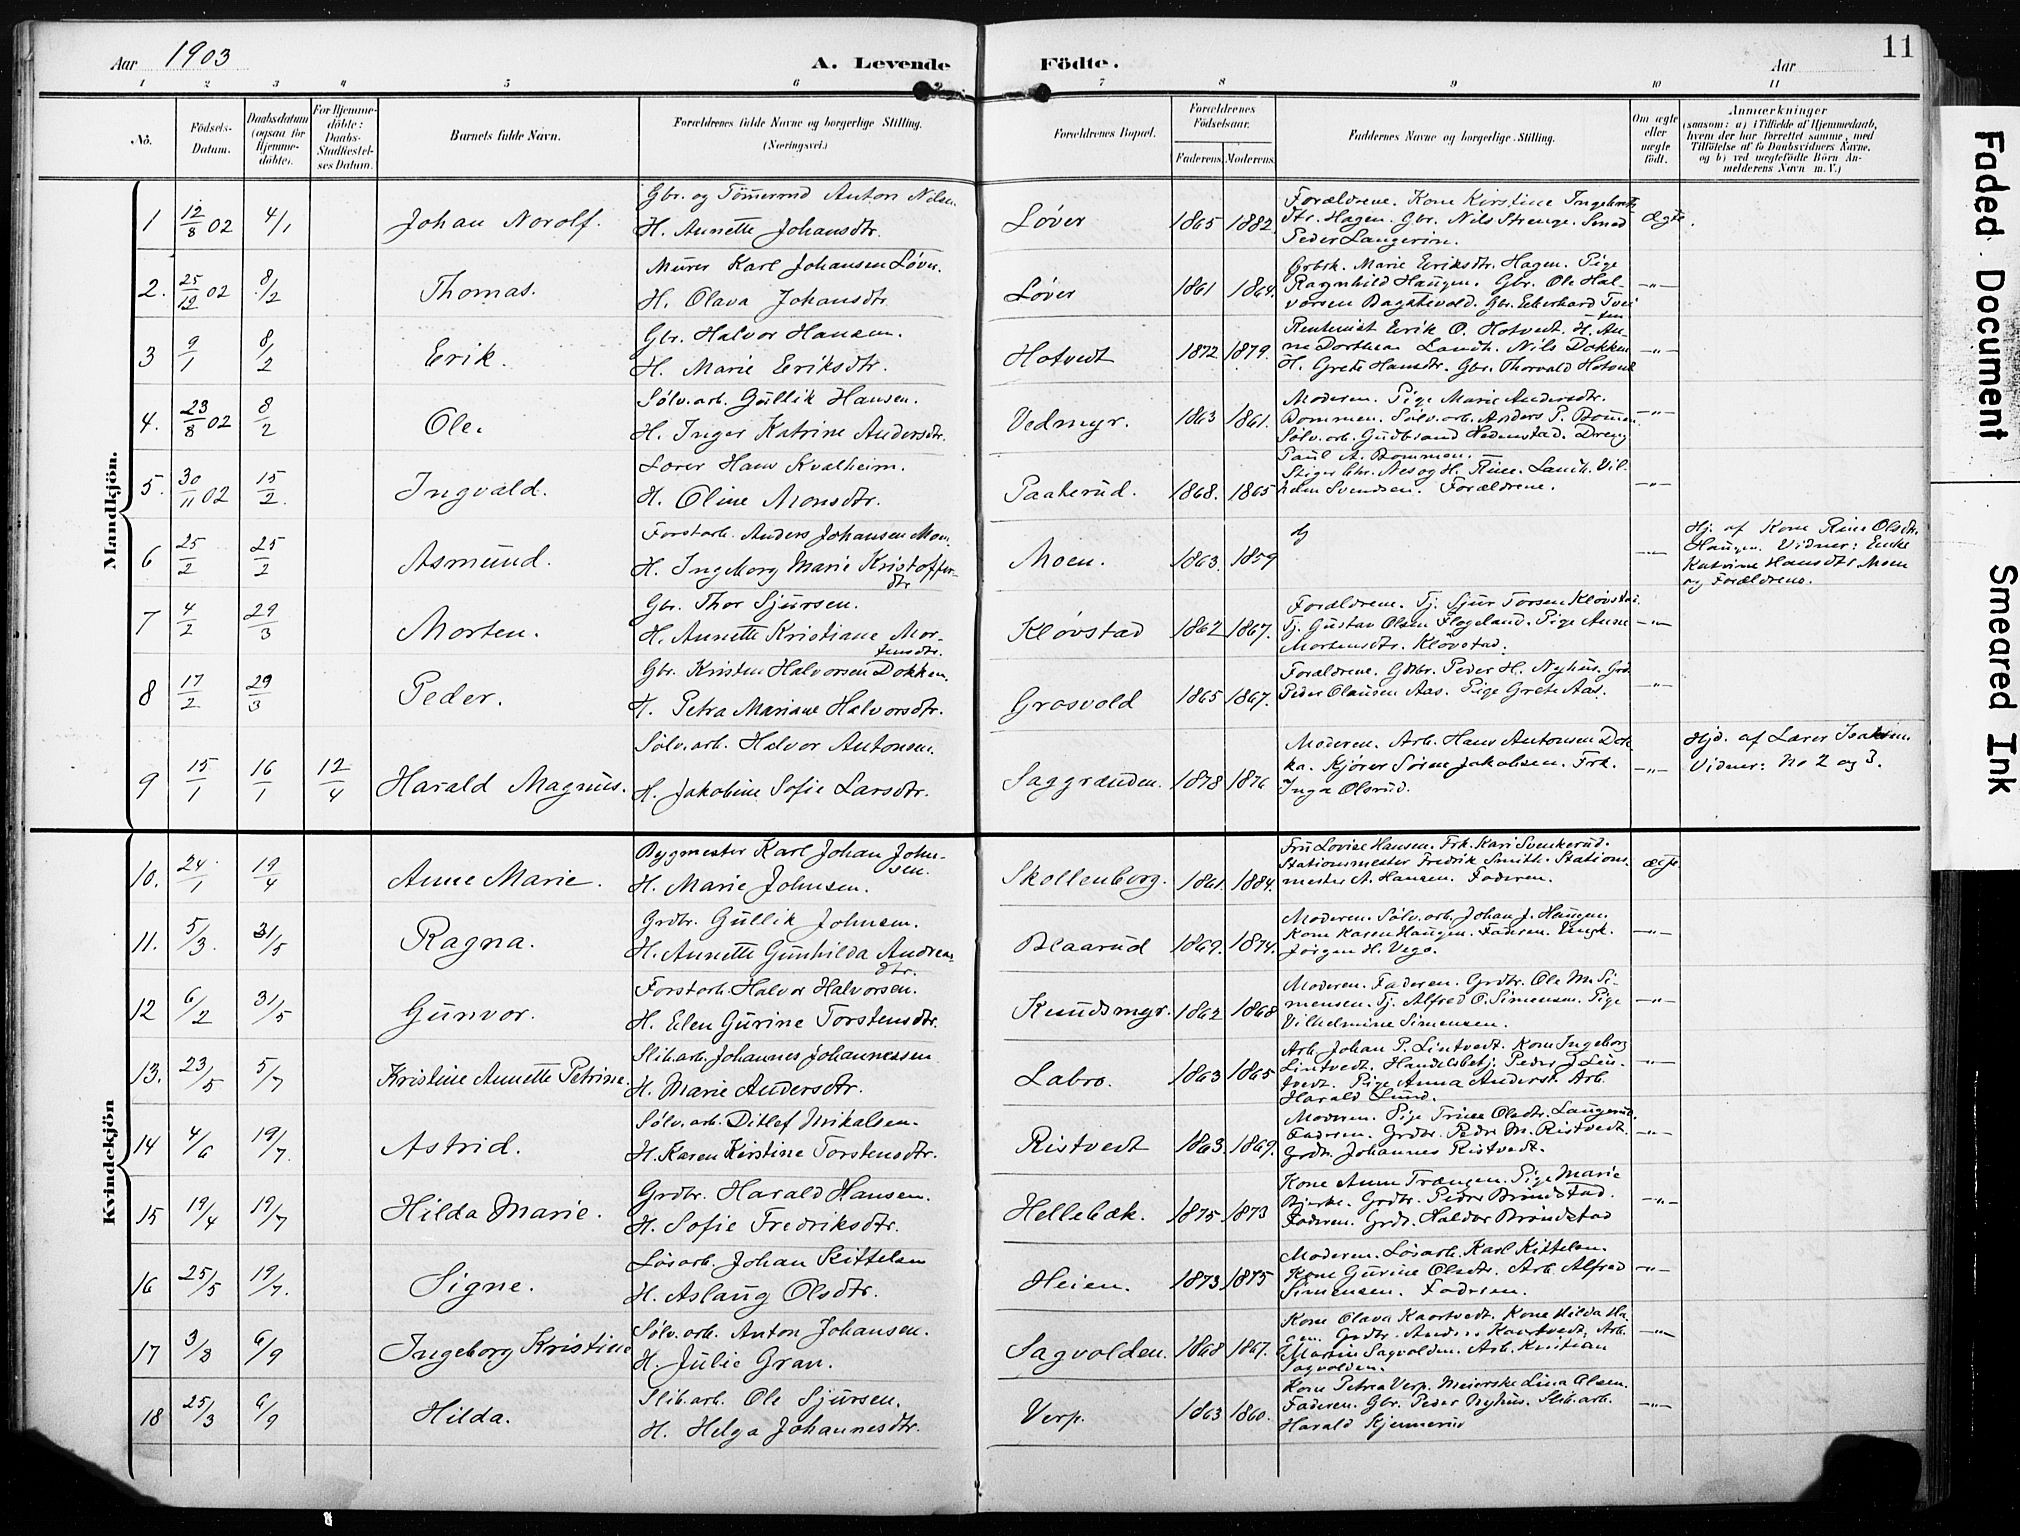 Aar 1903
A. Levende
Födte.
Aar
11
1 2 3 4 5 6 7 8 9 10 11
No.
Födsels-
Datum.
Daabsdatum
(ogsaa for
Hjemme-
döbte).
For Hjemme-
döbte:
Daabs-
Stadfæstel-
ses Datum.
Barnets fulde Navn.
Forældrenes fulde Navne og borgerlige Stilling.
(Næringsvei.)
Forældrenes Bopæl.
Forældrenes
Födselsaar.
Faderens. Moderens.
Faddernes Navne og borgerlige Stilling.
Om ægte
eller
uægte
födt.
Anmærkninger
(saasom: a) i Tilfælde af Hjemmedaab,
hvem der har forrettet samme, med
Tilföielse af to Daabsvidners Navne,
og b) ved uægtefödte Börn An-
melderens Navn m. V.)
Mandkjön.
1 12/8 02 4/1 Johan Norolf.
Gbr. og Tömermd Anton Nilsen
H. Annette Johansdtr.
Løver 1865 1882.
Forældrene. Kone Kirstine Ingebrets
dtr. Hagen. Gbr. Nils Strenge. Smed
Peder Langerin.
Ægte.
2. 25/12 02 8/2 Thomas.
Murer Karl Johansen Løver.
H. Olava Johansdtr.
Løver 1861 1864.
Grbrk. Marie Eriksdtr. Hagen. Pige
Ragnhild Haugen. Gbr. Ole Hal-
vorsen Bagstevold. Gbr. Ekerhard Tvei
ten
-"-
3 9/1 8/2 Erik.
Gbr. Halvor Hansen.
H. Marie Eriksdtr.
Hotvedt 1872 1879.
Rentenist Erik O. Hotvedt. H. An-
ne Dorthea Landh. Nils Dokken
H. Grete Hansdtr. Gbr. Thorvald Hotvedt
-"-
4. 23/8 02 8/2 Ole.
Sølv.arb. Gullik Hansen.
H. Inger Katrine Andersdtr.
Vedmyr. 1863 1861.
Moderen. Pige Marie Andersdtr.
Bommen. Sølv.arb. Anders P. Bommen.
Sølv.arb. Gudbrand Hedenstad. Dreng
Paul A. Bommen.
-"-
5. 30/11 02 15/2. Ingvald.
Lærer Hans Kvalheim.
H. Oline Monsdtr.
Paaterud. 1868. 1865
Stiger Chr. Nes og H. Rine. Landh. Vil-
helm Svendsen. Forældrene.
-"-
6 25/2 25/2 Asmund.
Forstarb. Anders Johansen Moen.
H. Ingeborg Marie Kristoffer-
dtr
Moen. 1863. 1859
-"-
Hj. af Kone Rine Olsdtr.
Haugen. Vidner: Enke
Katrine Hansdtr Moen
og Forældrene.
7 4/2 29/3 Morten.
Gbr. Thor Sjursen.
H. Annette Kristiane Mor-
tensdtr.
Kløvstad 1862 1867.
Forældrene. Tj. Sjur Torsen Kløvstad.
Tj. Gustav Olsen Flogeland. Pige Anne
Mortensdtr. Kløvstad.
-"-
8 17/2 29/3 Peder.
Gbr. Kristen Halvorsen Dokken.
H. Petra Mariane Halvorsdtr.
Grosvold 1865 1867.
Forældrene. Grdbr. Peder H. Nyhus. Grd.
Peder Olausen Aas. Pige Grete Aas.
-"-
9 15/1 16/1 12/4 Harald Magnus.
Sølv.arb. Halvor Antonsen.
H. Jakobine Sofie Larsdtr.
Saggranden. 1878 1876
Moderen. Arb. Hans Antonsen Dok-
ka. Kjører Søren Jakobsen. Frk.
Inga Olsrud.
-"-
Hjd. af Lærer Isaksen.
Vidner: No 2 og 3.
Kvindekjön
10. 24/1 19/4 Anne Marie.
Bygmester Karl Johan John-
sen.
H. Marie Johnsen.
Skollenborg. 1861. 1884.
Fru Lovise Hansen. Frk. Kari Svenkerud.
Stationsmester Fredrik Smith. Stations-
mester A. Hansen. Faderen.
ægte
11. 5/3. 31/5 Ragna.
Grdbr. Gullik Johnsen.
H. Annette Gunhilda Andreas
dtr.
Blaarud 1869. 1874.
Moderen. Sølv.arb. Johan J. Haugen.
Kone Karen Haugen. Faderen. Ungk.
Jørgen H. Vego.
-"-
12 6/2 31/5 Gunvor.
Forstarb. Halvor Halvorsen.
H. Elen Gurine Torstensdtr.
Knudsmyr. 1862 1868
Moderen. Faderen. Grdbr. Ole M. Si-
mensen. Tj. Alfred O. Simensen. Pige
Vilhelmine Simensen.
-"-
13. 23/5 5/7 Kristine Annette Petrine.
Slib.arb. Johannes Johannessen
H. Marie Andersdtr.
Labro. 1863 1865
Arb. Johan P. Lintvedt. Kone Ingeborg
Lintvedt. Handelsbetj. Peder J. Lin-
tvedt. Pige Anna Andersd. Arb.
Harald Lund.
-"-
14 4/6 19/7. Astrid.
Sølv.arb. Ditlef Mikalsen.
H. Karen Kirstine Torstensdtr.
Ristvedt 1863. 1869.
Moderen. Pige Trine Olsdtr. Langerud.
Faderen. Grdbr. Peder M. Ristvedt.
Grdbr. Johannes Ristvedt.
-"-
15 19/4 19/7 Hilda Marie.
Grdbr. Harald Hansen.
H. Sofie Fredriksdtr.
Hellebæk. 1875 1873
Kone Anne Trængen. Pige Marie
Bjerke. Grdbr. Peder Brøndstad.
Faderen. Grdb. Haldor Brøndstad
-"-
16 25/5 19/7. Signe.
Løsarb. Johan Kittelsen
H. Aslaug Olsdtr.
Heien. 1873 1875
Moderen. Løsarb. Karl Kittelsen.
Kone Gurine Olsdtr. Arb. Alfred
Simensen. Faderen.
-"-
17 3/8 6/9 Ingeborg Kristine
Sølv.arb. Anton Johansen.
H. Julie Gran.
Sagvolden. 1868 1867.
Kone Olava Kaartvedt. Kone Hilda Ha-
gen. Grdbr. Anders Kaartvedt. Arb.
Martin Sagvolden. Arb. Kristian
Sagvolden.
-"-
18 25/3 6/9 Hilda.
Slib.arb. Ole Sjursen.
H. Helga Johannesdtr.
Verp. 1863 1860.
Kone Petrea Verp. Meierske Lina Olsen.
Faderen. Gbr. Peder Nyhus. Slib.arb.
Harald Kjennerud
-"-
Faded Document
Smeared Ink